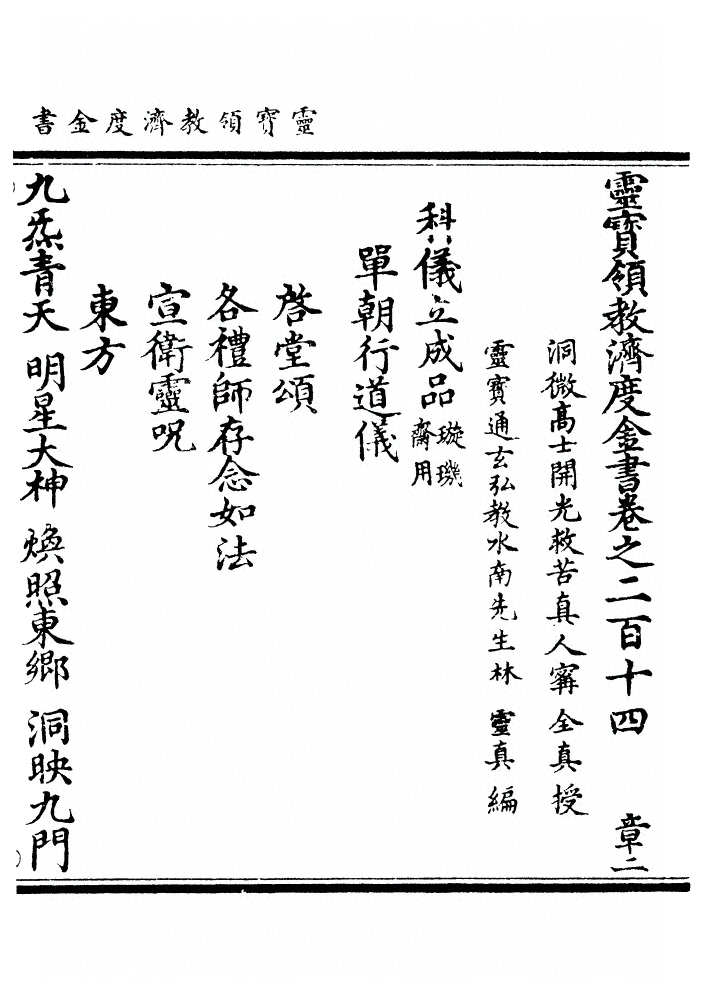 靈寶領教濟度金書
靈寶領教濟度金書卷之二百十四 章二
洞微高士開光救苦真人甯 全真 授
靈寶通玄弘教水南先生林 靈真 編
科儀立成品 璇璣齋用
單朝行道儀
啓堂頌
各禮師存念如法
宣衛靈呪
東方
九炁青天 明星大神 煥照東鄉 洞映九門